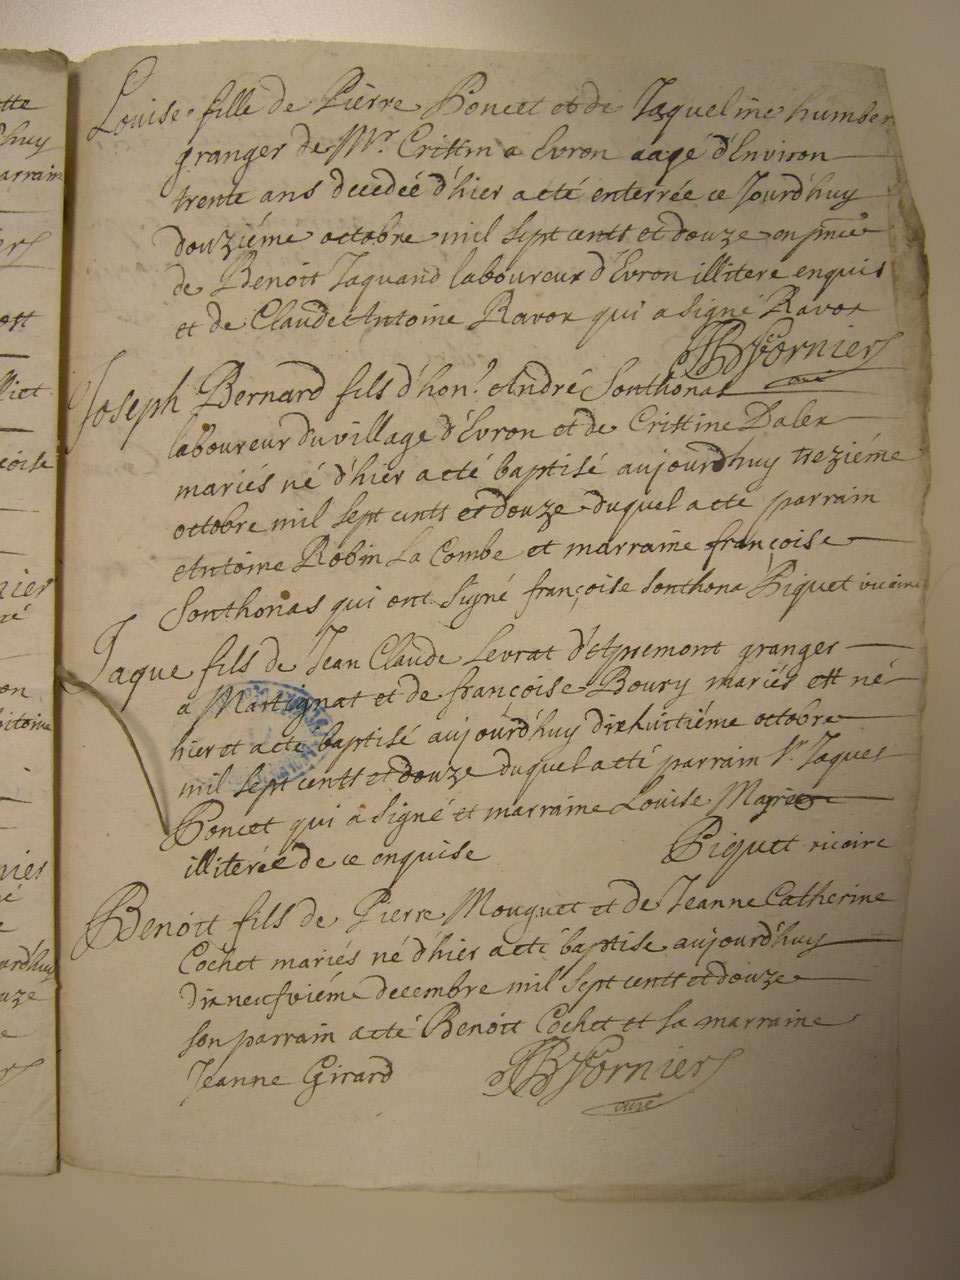 Louise fille de Pierre Poncet et de Jaqueline humber
granger de Mr. Crittin a Evron aagé d'Environ
trente ans decedeé d'hier a eté enterrée ce Jourd'huy
douziéme octobre mil sept cents et douze en pnce
de Benoit Jaquand laboureur d'Evron illitere enquis
et de Claude Antoine Ravox qui a signé Ravox
Fornier
curé
Joseph Bernard fils d'hon. André Sonthonax
laboureur du village d'Evron et de Crittine Dalex
mariés né d'hier a eté baptisé aujourd'huy treziéme
octobre mil sept cents et douze duquel a eté parrain
Antoine Robin La Combe et marraine françoise
Sonthonas qui ont signé françoise Sonthona Piquet vicaire
Jaque fils de Jean Claude Levrat d'Apremont granger
a Martignat et de françoise Boury mariés est né
hier et a eté baptisé aujourd'huy dixhuitiéme octobre
mil sept cents et douze duquel a eté parrain Sr. Jaques
Poncet qui a signé et marraine Louise
illiterée de ce enquise Piquet vicaire
Benoit fils de Pierre Mouguet et de Jeanne Catherine
Cochet mariés né d'hier a eté baptisé aujourd'huy
dixneufviéme decembre mil sept cents et douze
son parrain a eté Benoit Cochet et sa marraine
Jeanne Girard Fornier
curé